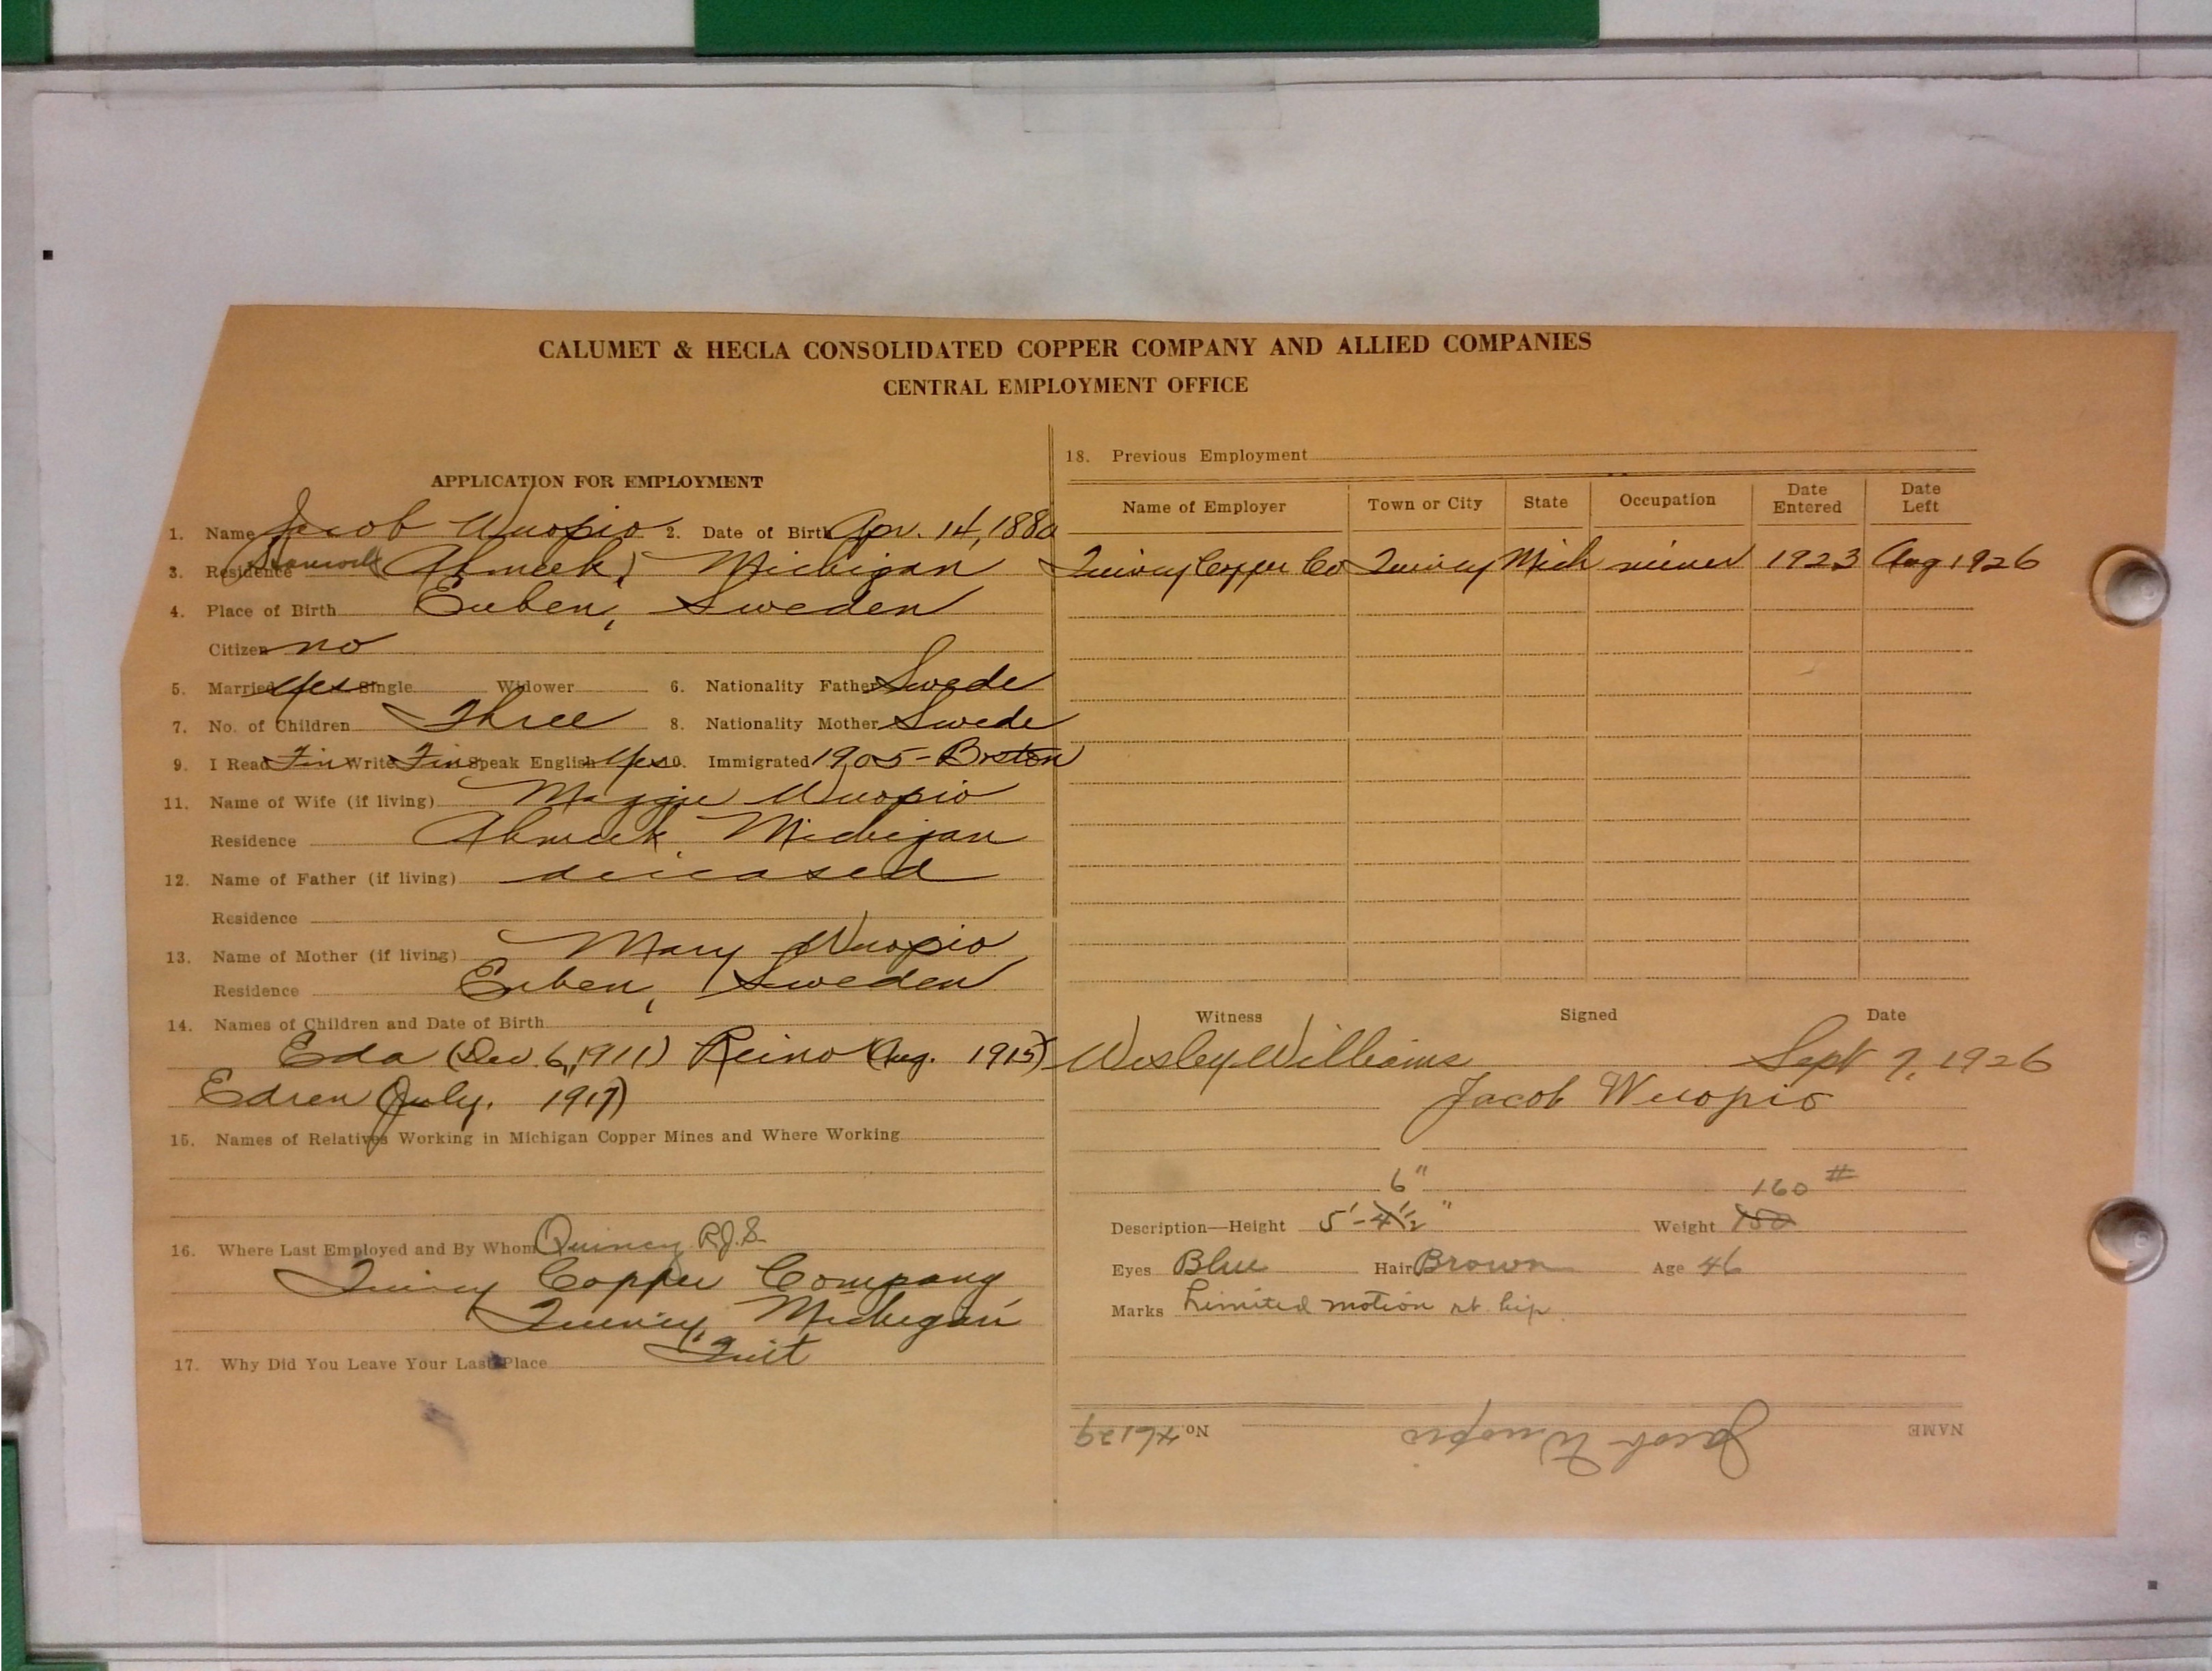 CALUMET & HECLA CONSOLIDATED COPPER COMPANY AND ALLIED COMPANIES
CENTRAL EMPLOYMENT OFFICE
APPLICATION FOR EMPLOYMENT
1. Name Jacob Wuopio 2. Date of Birth Apr. 14, 1880
3. Residence Ahmeek, Michigan
4. Place of Birth Erben, Sweden
Citizen no
5. Married Yes Single Widower 6. Nationality Father Swede
7. No. of Children Three 8. Nationality Mother Swede
9. I Read Fin Write Fin Speak English Yes 10. Immigrated 1905 - Boston
11. Name of Wife (if living) Maggie Wuopio
Residence Ahmeek Michigan
12. Name of Father (if living) deceased
Residence
13. Name of Mother (if living) Mary Wuopio
Residence Erben, Sweden
14. Names of Children and Date of Birth
Eda (Dec 6, 1911) Reino (Aug. 1915)
Edren (July. 1917)
15. Names of Relatives Working in Michigan Copper Mines and Where Working
16. Where Last Employed and By Whom Quincy R.J.S.
Quincy Copper Company
Quincy, Michigan
17. Why Did You Leave Your Last Place Quit
18. Previous Employment
Name of Employer Town or City State Occupation Date Entered Date Left
Quincy Copper Co Quincy Mich miner 1923 Aug 1926
Witness Signed Date
Wesley Williams Sept 7, 1926
Jacob Wuopio
6" 160 #
Description—Height 5'-4½" Weight 150
Eyes Blue Hair Brown Age 46
Marks Limited motion rt hip
NAME Jacob Wuopio No. 46129